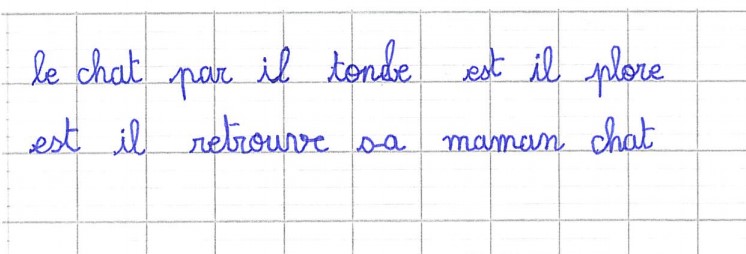 le chat par il tonbe est il plore
est il retrouve sa maman chat